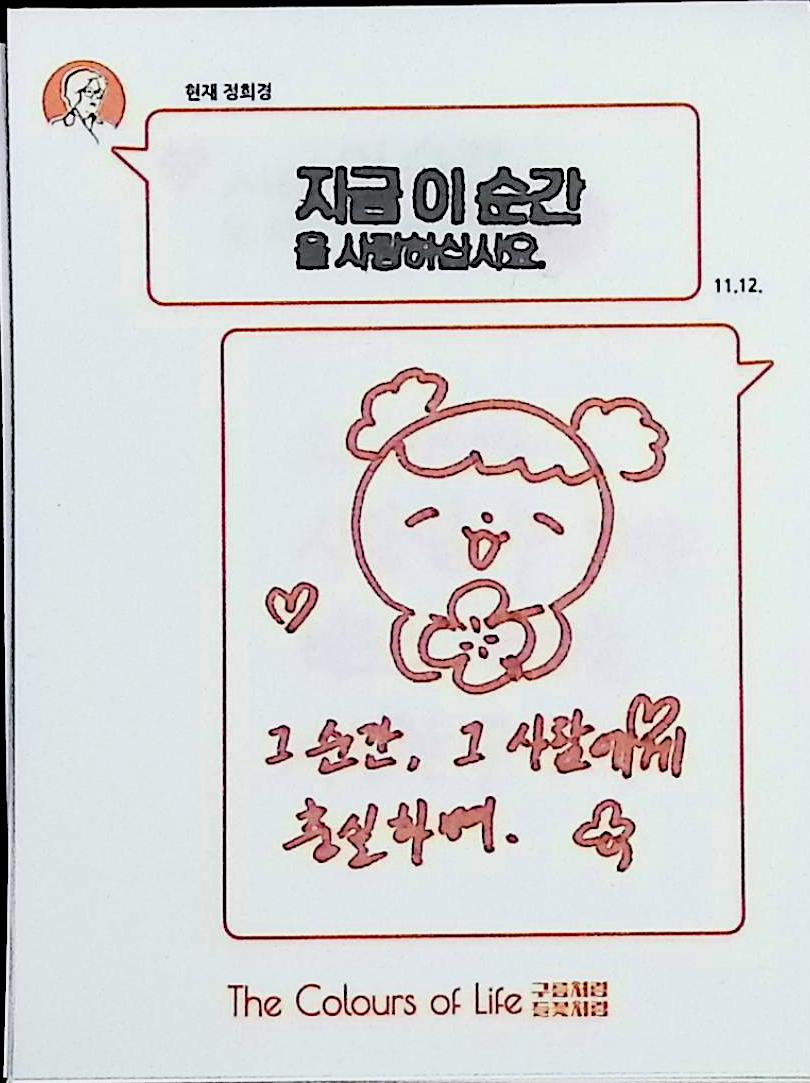 현재 정희경
지금 이 순간
을 사랑하십시오.
11.12.
그 순간, 그 사람에게
충실하며.
The Colours of Life 구름처럼
들꽃처럼